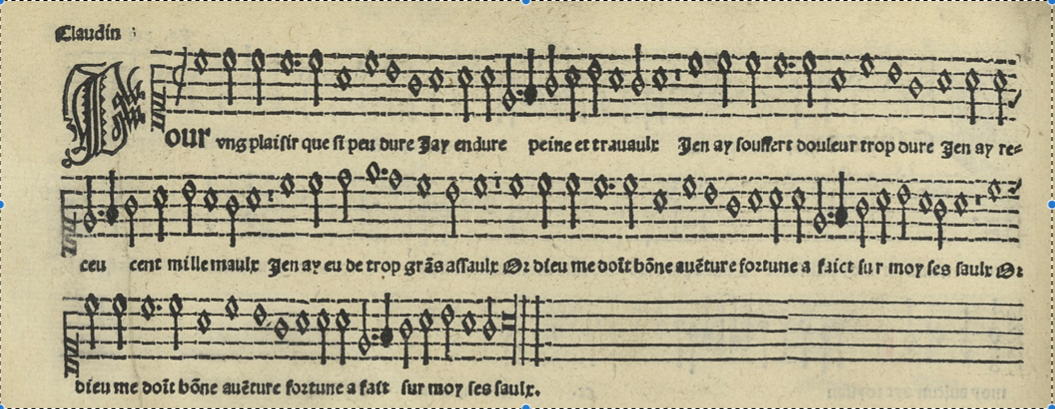 Claudin
Pour vng plaisir que si peu dure Jay endure peine et trauaulx Jen ay souffert douleur trop dure Jen ay re=
ceu cent mille maulx Jen ay eu de trop grãs assaulx Or dieu me doĩt bõne auẽture fortune a faict sur moy ses saulx Or
dieu me doĩt bõne auẽture fortune a fait sur moy ses saulx.